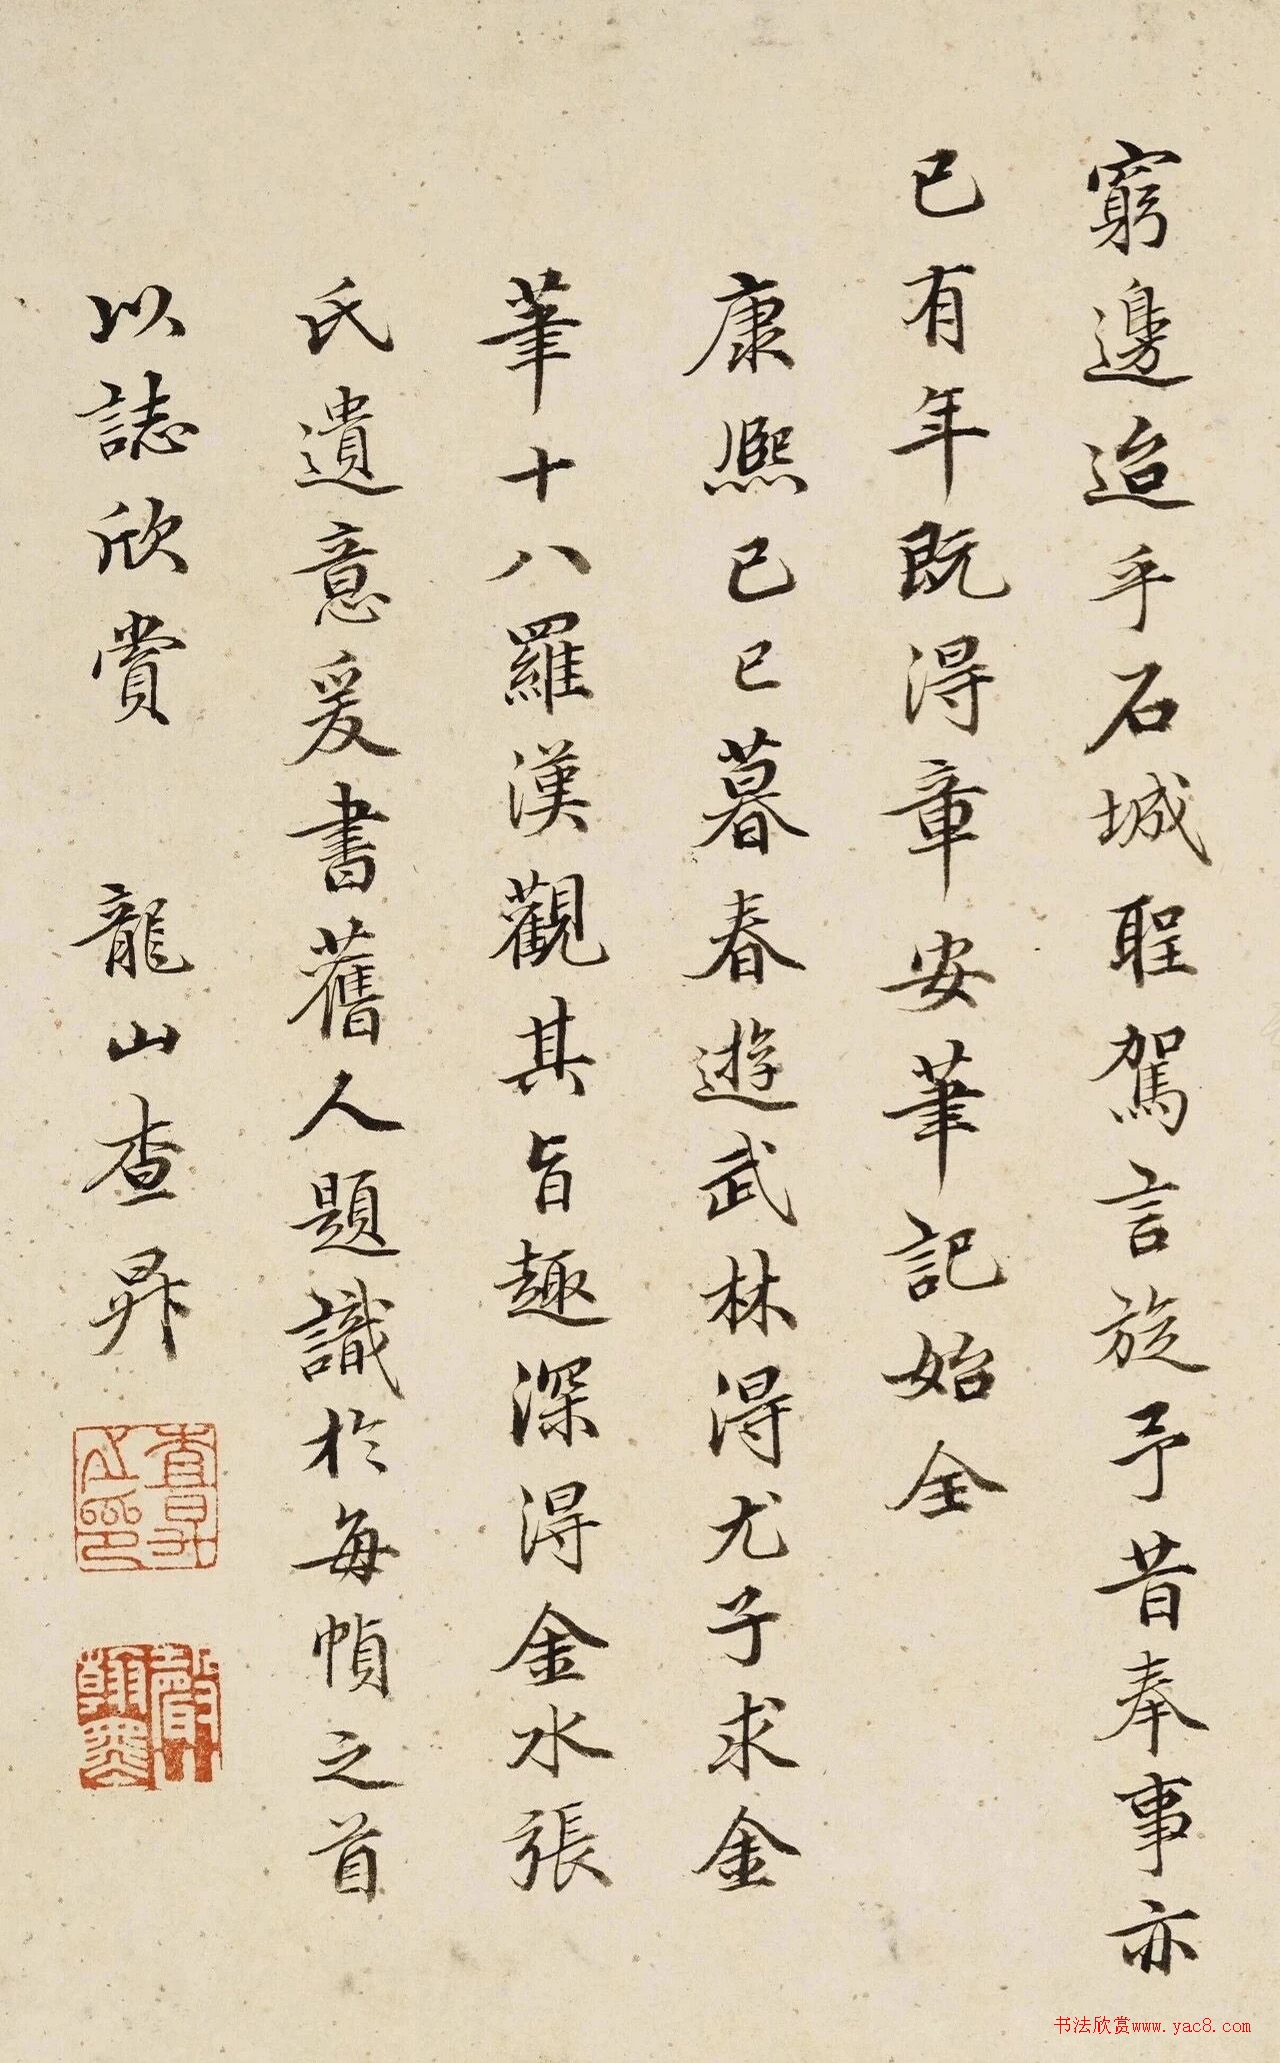 窮邊迨乎石城聖駕言旋予昔奉事亦
已有年既得章安筆記始全
康熙己巳暮春遊武林得尤子求金
筆十八羅漢觀其旨趣深得金水張
氏遺意爰書舊人題識於每幀之首
以誌欣賞 龍山查昇
查昇之印
聲翰墨
书法欣赏www.yac8.com